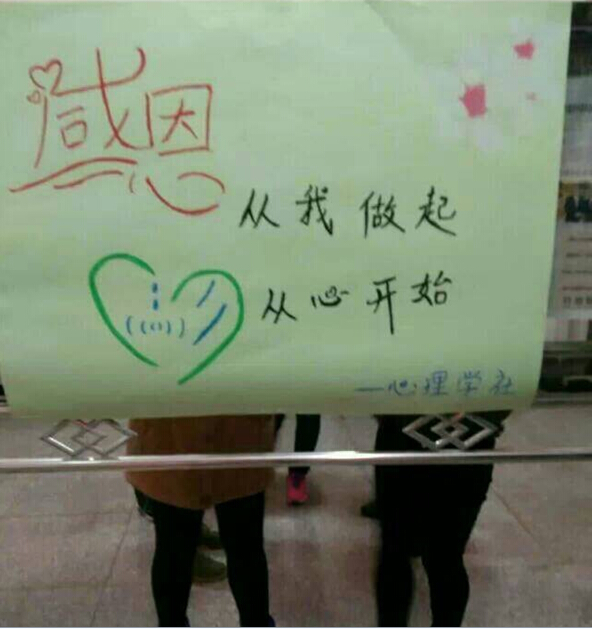 感恩
从我做起
从心开始
—心理学社